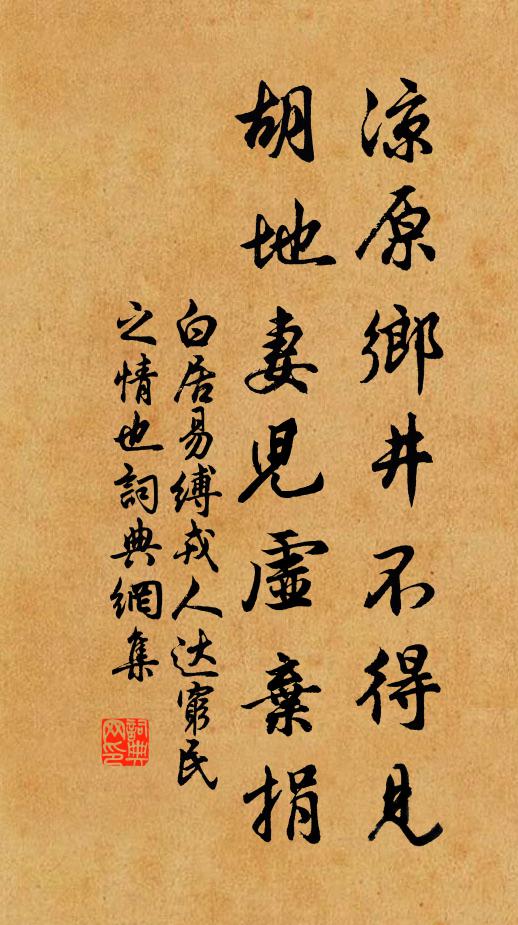 涼原鄉井不得見
胡地妻兒虛棄捐
白居易縛戎人达窮民
之情也詞典網集
詞典網印